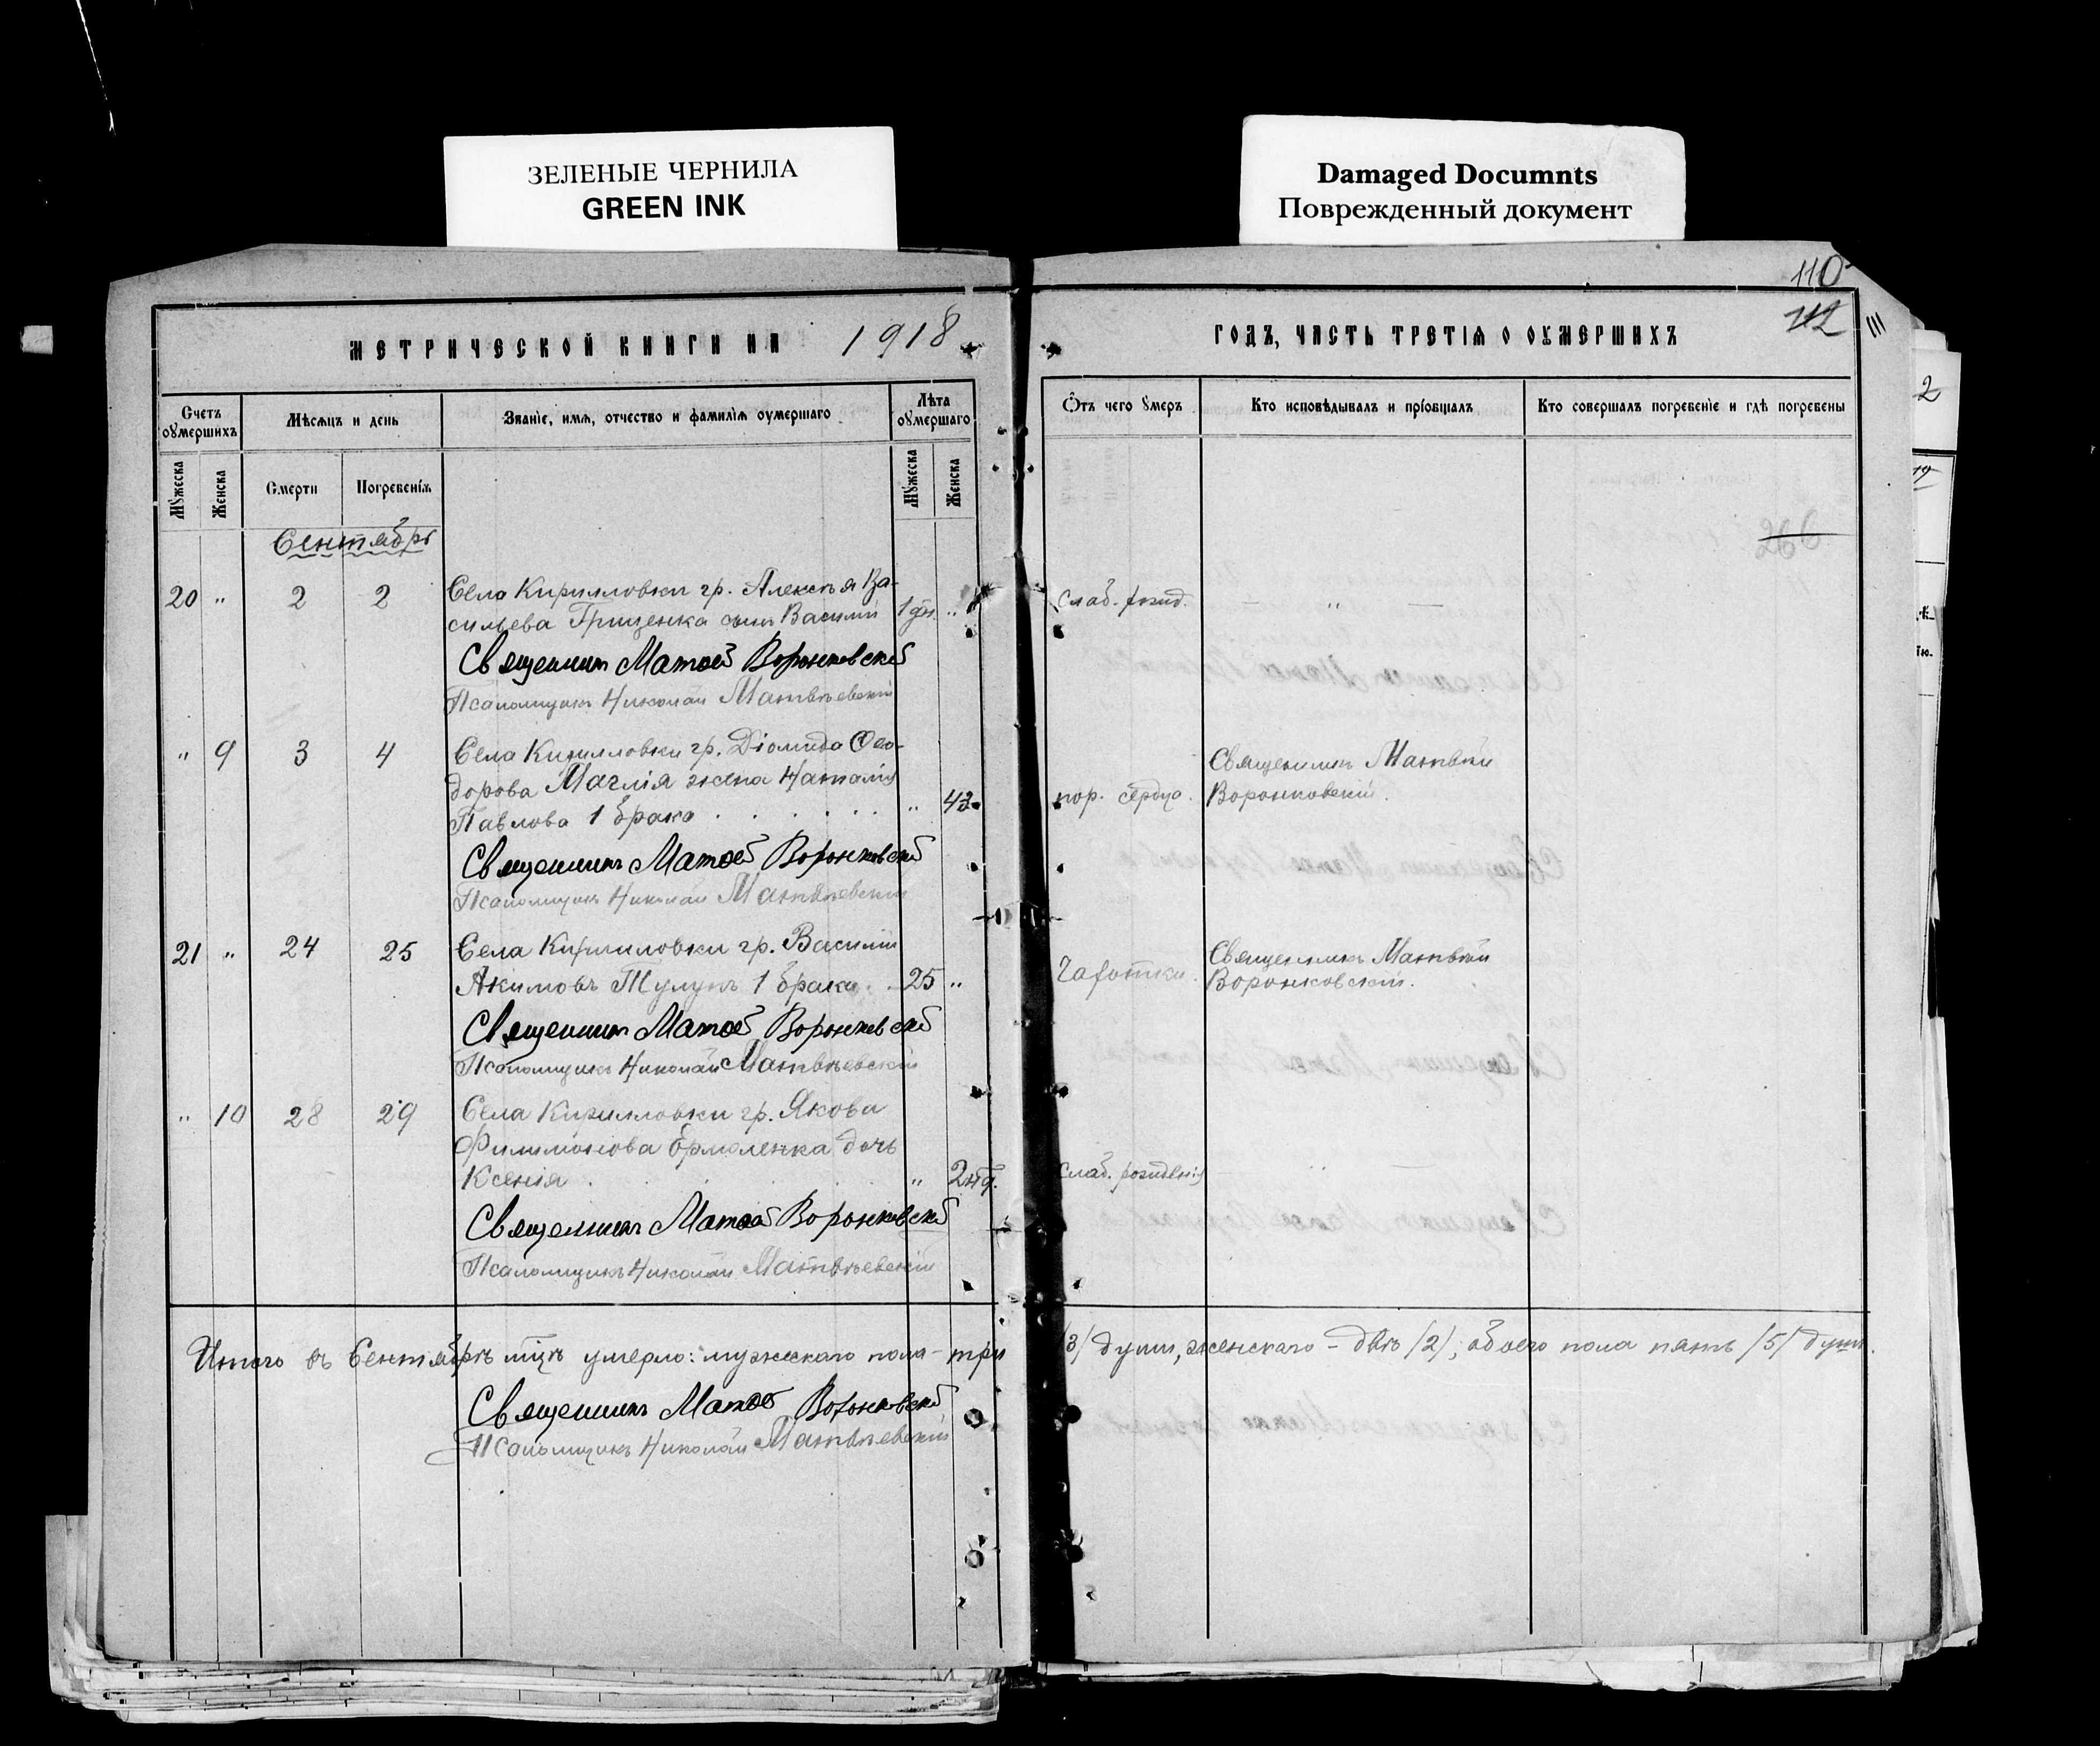 ЗЕЛЕНЫЕ ЧЕРНИЛА
GREEN INK
Damaged Documnts
Поврежденный документ
110
112
111
МЕТРИЧЕСКОЙ КНИГИ НА 1918
ГОДЪ, ЧАСТЬ ТРЕТІЯ О ОУМЕРШИХЪ
Счетъ оумершихъ
Мѣсяцъ и день
Званіе, имя, отчество и фамилія оумершаго
Лѣта оумершаго
Отъ чего умеръ
Кто исповѣдывалъ и пріобщалъ
Кто совершалъ погребеніе и гдѣ погребены
Мужеска
Женска
Смерти
Погребенія
Мужеска
Женска
Сентябрь
266
20 " 2 2 Села Кирилловки гр. Алексѣя Ва-
сильева Гриценка сынъ Василій 1 дн. " слаб. рожд. — " —
Священникъ Матвей Воронковскій
Псаломщикъ Николай Матвѣевскій
" 9 3 4 Села Кирилловки гр. Діомида Ѳео-
дорова Маглія жена Наталія
Павлова 1 брака " 43 пор. сердца. Священникъ Матвѣй
Воронковскій.
Священникъ Матвей Воронковскій
Псаломщикъ Николай Матвѣевскій
21 " 24 25 Села Кирилловки гр. Василій
Акимовъ Тулупъ 1 брака 25 " Чахотки. Священникъ Матвѣй
Воронковскій.
Священникъ Матвей Воронковскій
Псаломщикъ Николай Матвѣевскій
" 10 28 29 Села Кирилловки гр. Якова
Филимонова Ермоленка дочь
Ксенія " 2 нед. Слаб. рожденія " —
Священникъ Матвей Воронковскій
Псаломщикъ Николай Матвѣевскій
Итого въ Сентябрѣ мцѣ умерло: мужескаго пола - три /3/ души, женскаго - двѣ /2/, обоего пола пять /5/ душъ.
Священникъ Матвей Воронковскій
Псаломщикъ Николай Матвѣевскій
2